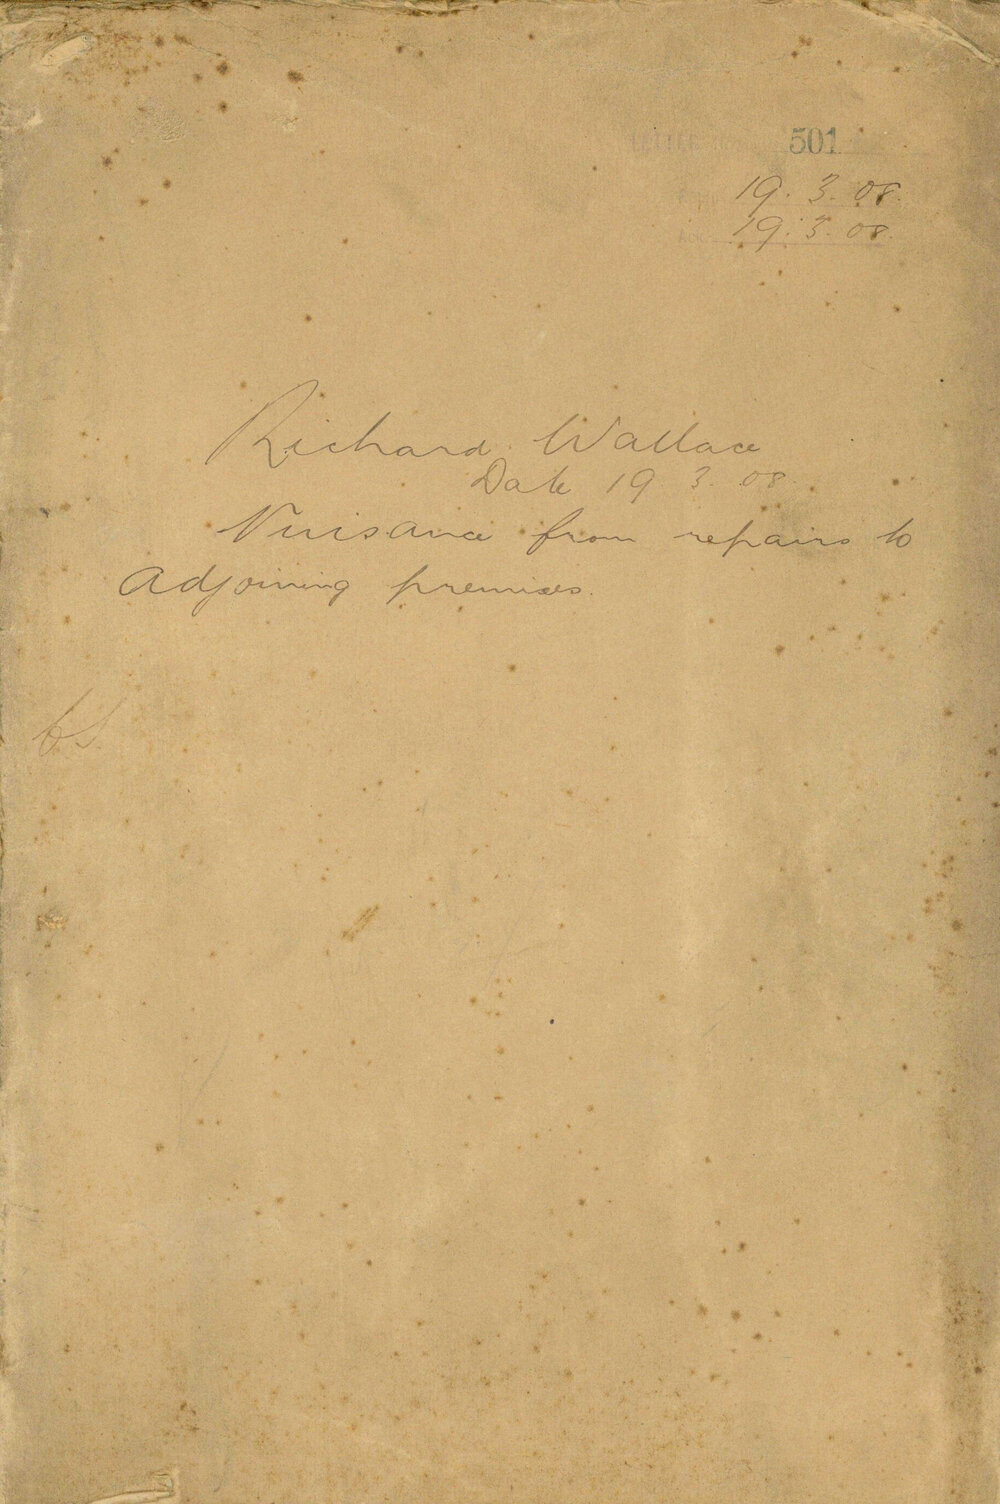 LETTER 501
19. 3. 08.
19. 3. 08.
Richard Wallace
Date 19 3. 08.
Nuisance from repairs to
adjoining premises.